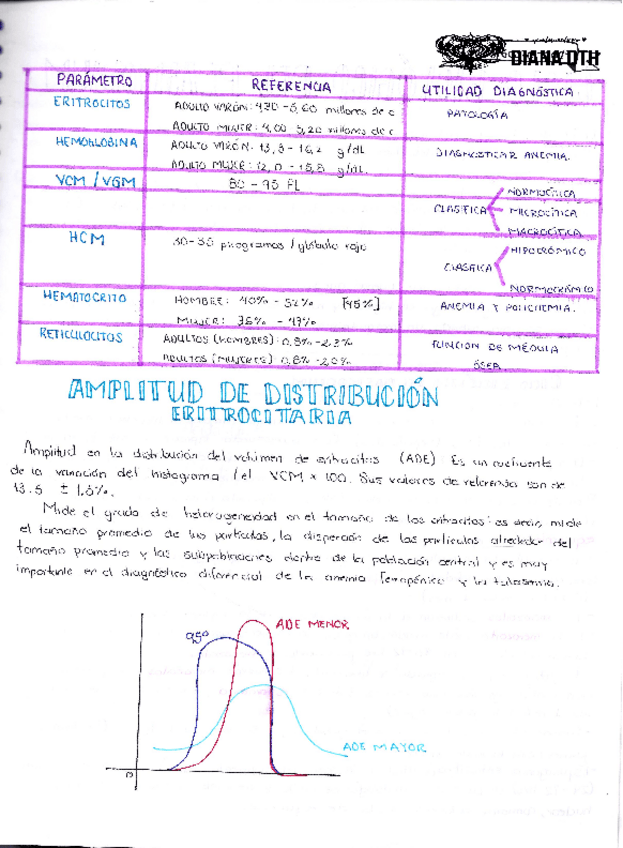 DIANA QTH
PARÁMETRO REFERENCIA UTILIDAD DIAGNÓSTICA
ERITROCITOS ADULTO VARÓN: 4,30 - 5,60 millones de c PATOLOGÍA
ADULTO MUJER: 4,00 5,20 millones de c
HEMOGLOBINA ADULTO VARÓN: 13,3 - 16,2 g/dL DIAGNOSTICAR ANEMIA.
ADULTO MUJER: 12,0 - 15,8 g/dL.
VCM / VGM 80 - 95 FL
CLASIFICA NORMOCÍTICA
MICROCÍTICA
MACROCÍTICA
HCM 30-35 picogramos / glóbulo rojo CLASIFICA HIPOCRÓMICO
NORMOCRÓMICO
HEMATOCRITO HOMBRE: 40% - 52% [45%] ANEMIA Y POLICITEMIA.
MUJER: - 47%
RETICULOCITOS ADULTOS (HOMBRES): 0,8% -2,3% FUNCIÓN DE MÉDULA
ADULTOS (MUJERES) 0,8% -2,0% ÓSEA.
AMPLITUD DE DISTRIBUCIÓN
ERITROCITARIA
Amplitud en la distribución del volúmen de eritrocitos (ADE) Es un coeficiente
de la variación del histograma / el VCM x 100. Sus valores de referencia son de
13.5 ± 1.5%.
Mide el grado de heterogeneidad en el tamaño de los eritrocitos: es decir, mide
el tamaño promedio de las partículas, la dispersión de las partículas alrededor del
tamaño promedio y las subpoblaciones dentro de la población central y es muy
importante en el diagnóstico diferencial de la anemia ferropénica y la talasemia.
95°
ADE MENOR
ADE MAYOR
0